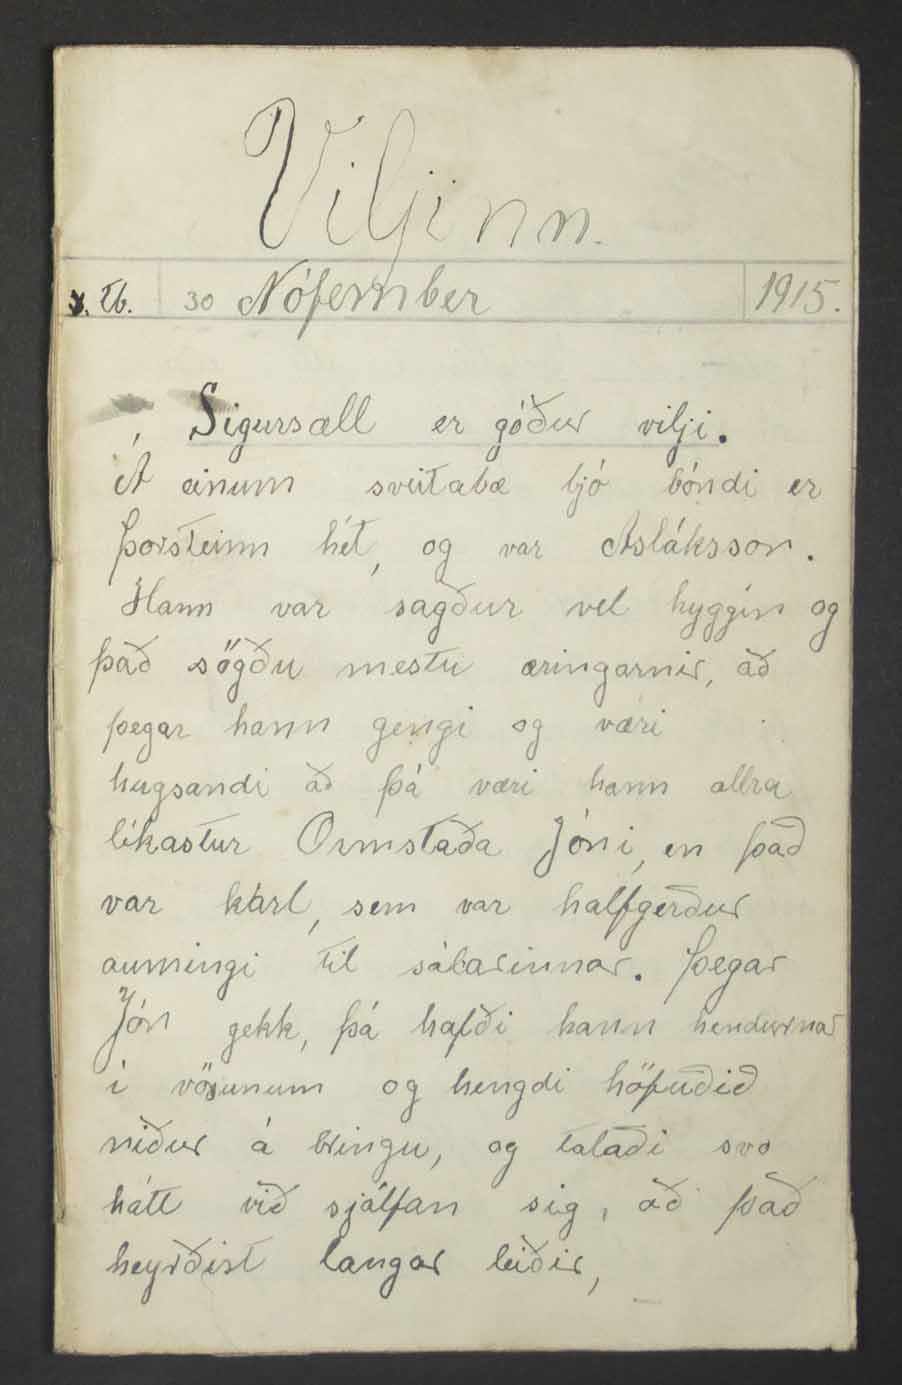 Viljinn.
1. Tb. 30 Nófember 1915.
Sigursæll er góður vilji.
Á einum sveitabæ bjó bóndi er
Þorsteinn hét, og var Ásláksson.
Hann var sagður vel hygginn og
það sögðu mestu æringarnir, að
þegar hann gengi og væri
hugsandi að þá væri hann allra
líkastur Ormstaða Jóni, en það
var karl, sem var halfgerður
aumingi til sálarinnar. Þegar
Jón gekk, þá hafði hann hendurnar
í vösunum og hengdi höfuðið
niður á bringu, og talaði svo
hátt við sjálfan sig, að það
heyrðist langar leiðir,